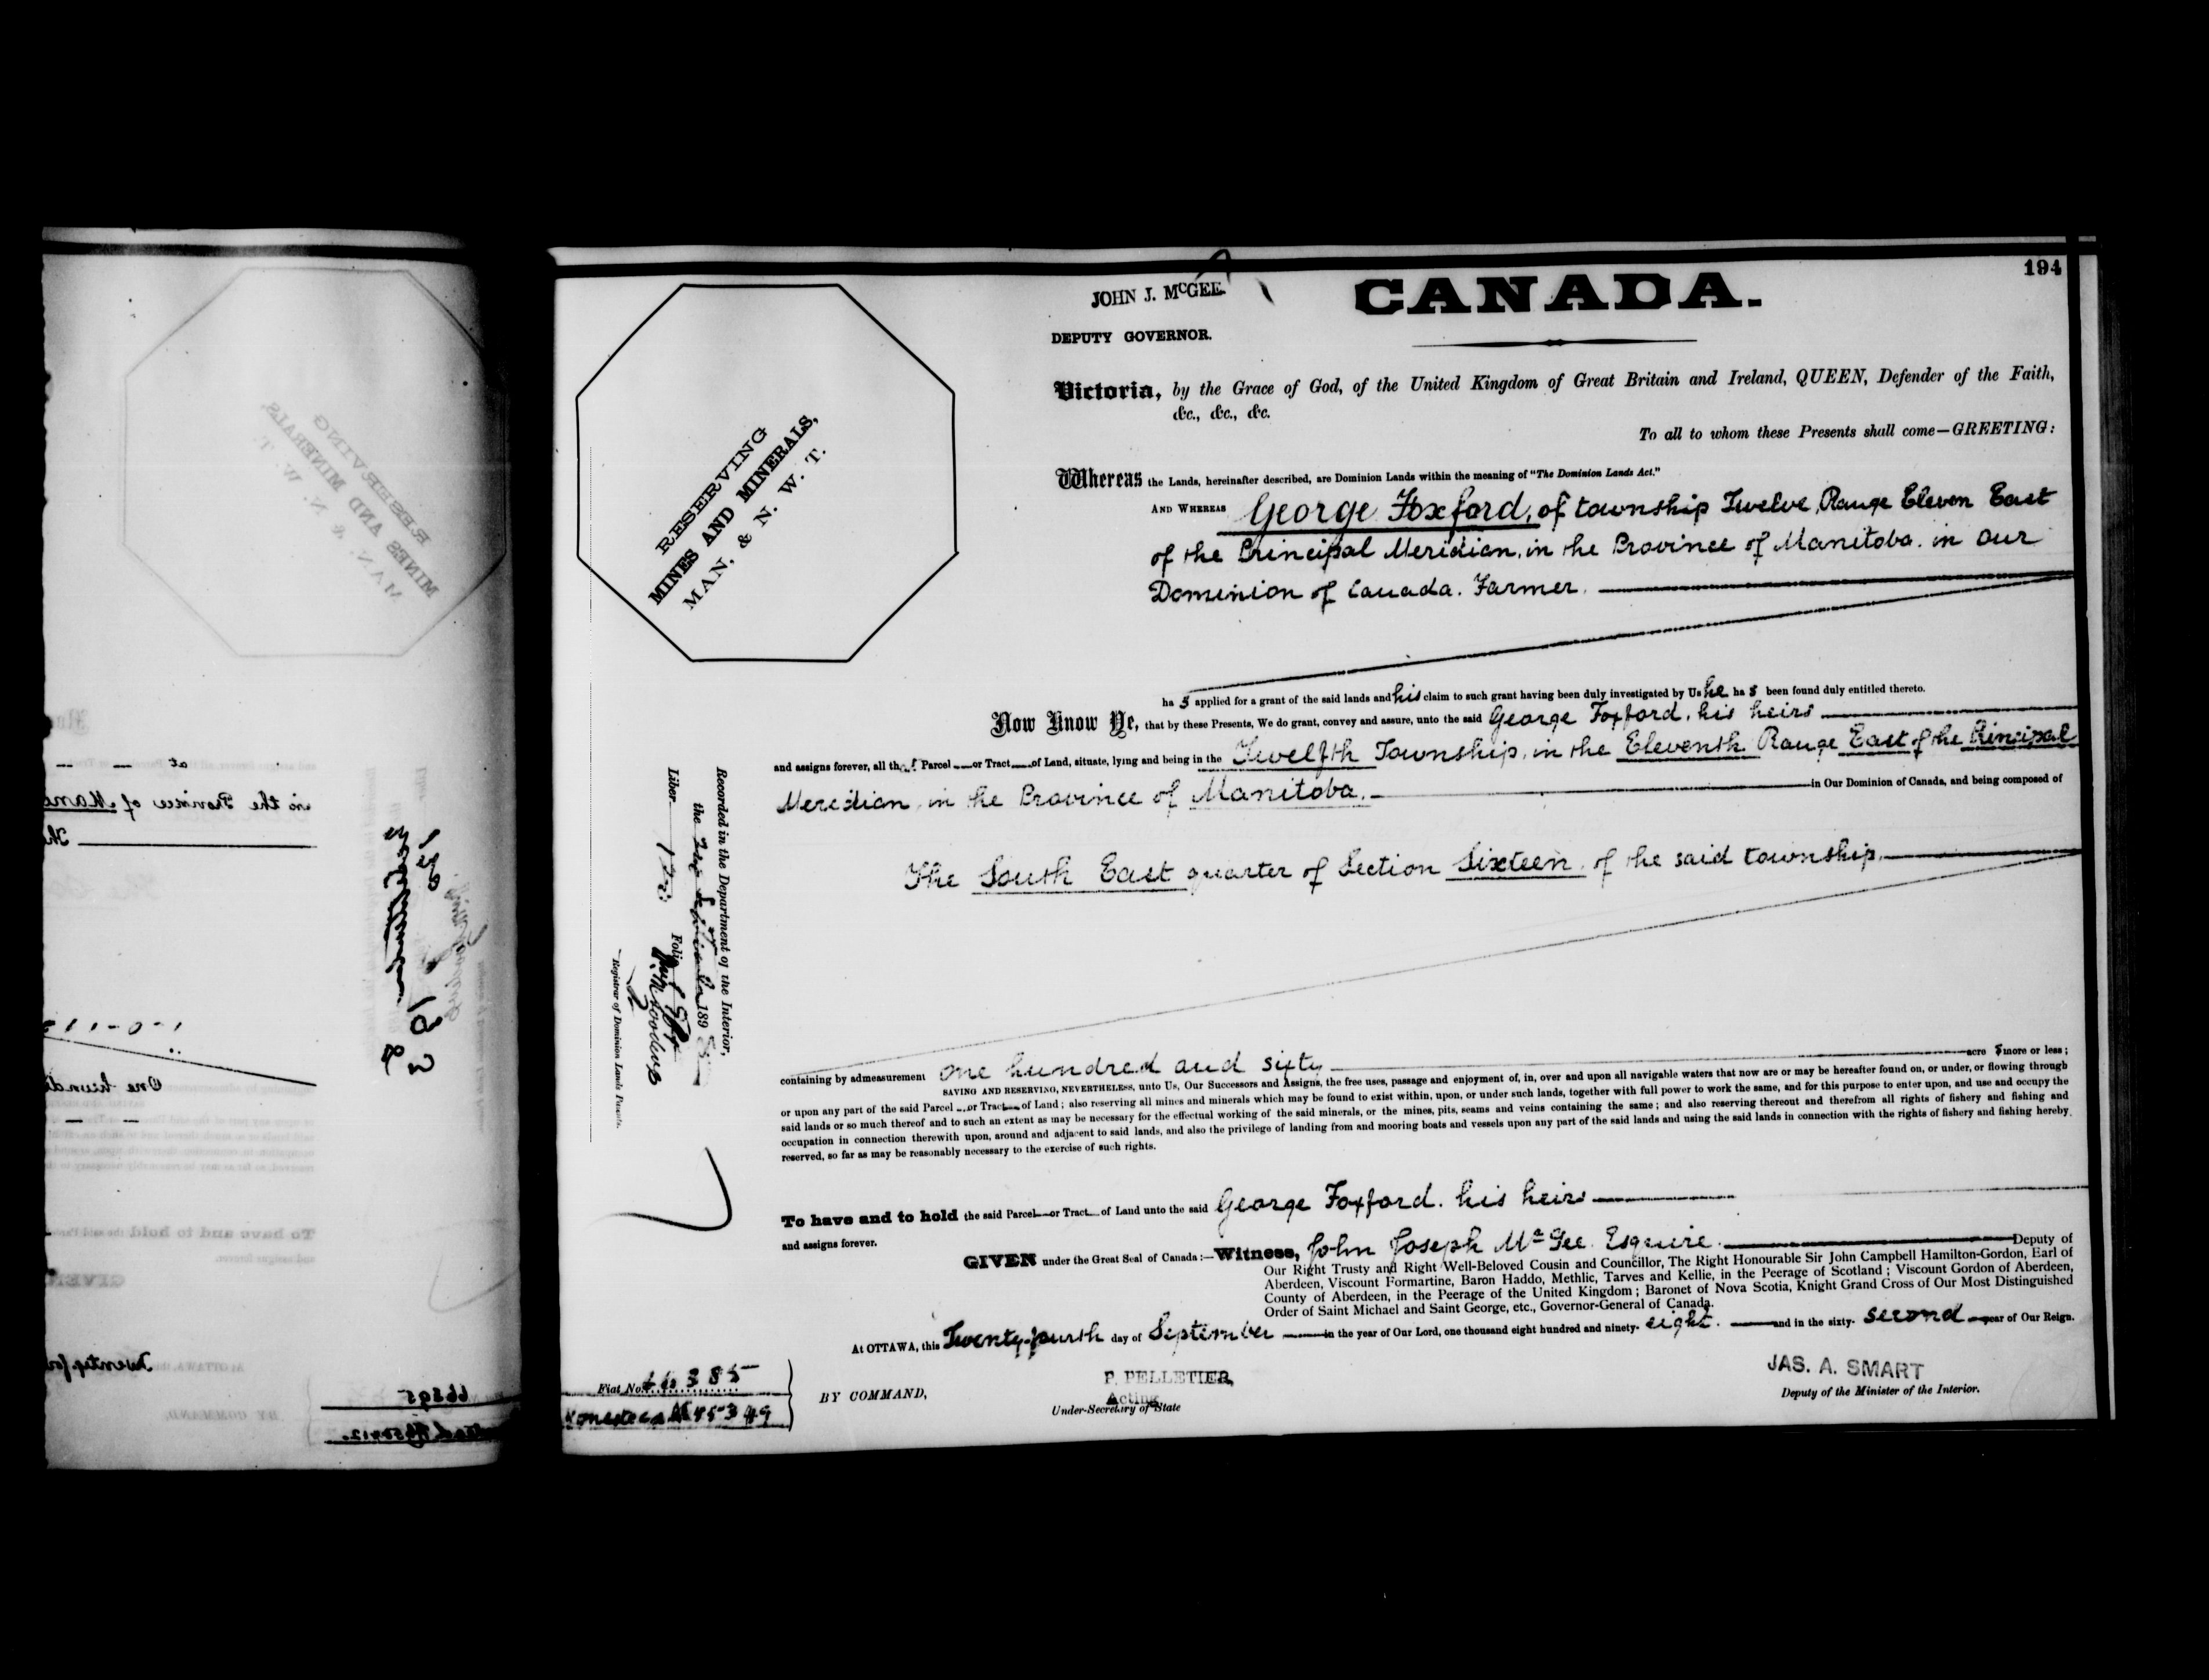 194
JOHN J. McGEE.
CANADA.
DEPUTY GOVERNOR.
RESERVING
MINES AND MINERALS,
MAN, & N. W. T.
Victoria, by the Grace of God, of the United Kingdom of Great Britain and Ireland, QUEEN, Defender of the Faith,
&c., &c., &c.
To all to whom these Presents shall come—GREETING:
Whereas the Lands, hereinafter described, are Dominion Lands within the meaning of "The Dominion Lands Act."
AND WHEREAS George Foxford, of township Twelve, Range Eleven East
of the Principal Meridian, in the Province of Manitoba. in Our
Dominion of Canada. Farmer.
ha s applied for a grant of the said lands and his claim to such grant having been duly investigated by Us he ha s been found duly entitled thereto.
Now Know Ye, that by these Presents, We do grant, convey and assure, unto the said George Foxford, his heirs
and assigns forever, all that Parcel or Tract of Land, situate, lying and being in the Twelfth Township, in the Eleventh Range East of the Principal
Meridian, in the Province of Manitoba. in Our Dominion of Canada, and being composed of
The South East quarter of Section Sixteen, of the said township.
Recorded in the Department of the Interior,
the 189
Liber Folio
Registrar of Dominion Lands Patents.
containing by admeasurement one hundred and sixty acre s more or less;
SAVING AND RESERVING, NEVERTHELESS, unto Us, Our Successors and Assigns, the free uses, passage and enjoyment of, in, over and upon all navigable waters that now are or may be hereafter found on, or under, or flowing through
or upon any part of the said Parcel or Tract of Land; also reserving all mines and minerals which may be found to exist within, upon, or under such lands, together with full power to work the same, and for this purpose to enter upon, and use and occupy the
said lands or so much thereof and to such an extent as may be necessary for the effectual working of the said minerals, or the mines, pits, seams and veins containing the same; and also reserving thereout and therefrom all rights of fishery and fishing and
occupation in connection therewith upon, around and adjacent to said lands, and also the privilege of landing from and mooring boats and vessels upon any part of the said lands and using the said lands in connection with the rights of fishery and fishing hereby
reserved, so far as may be reasonably necessary to the exercise of such rights.
To have and to hold the said Parcel or Tract of Land unto the said George Foxford. his heirs
and assigns forever.
GIVEN under the Great Seal of Canada:—Witness, John Joseph McGee. Esquire. Deputy of
Our Right Trusty and Right Well-Beloved Cousin and Councillor, The Right Honourable Sir John Campbell Hamilton-Gordon, Earl of
Aberdeen, Viscount Formartine, Baron Haddo, Methlic, Tarves and Kellie, in the Peerage of Scotland; Viscount Gordon of Aberdeen,
County of Aberdeen, in the Peerage of the United Kingdom; Baronet of Nova Scotia, Knight Grand Cross of Our Most Distinguished
Order of Saint Michael and Saint George, etc., Governor-General of Canada.
At OTTAWA, this Twenty-fourth day of September in the year of Our Lord, one thousand eight hundred and ninety- eight. and in the sixty- second year of Our Reign.
Fiat No. 66385
Homestead 45349
BY COMMAND,
P. PELLETIER,
Acting
Under-Secretary of State
JAS. A. SMART
Deputy of the Minister of the Interior.